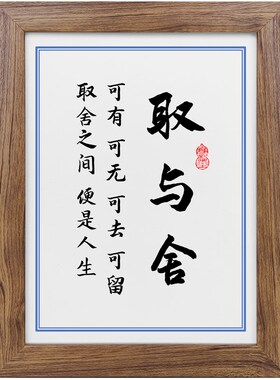 取与舍
可有 可无 可去 可留
取舍之间 便是人生